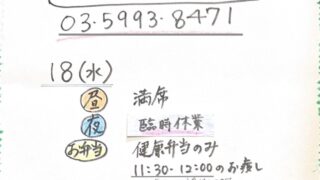 03・5993・8471
18(水)
昼 満席
夜 臨時休業
お弁当 健康弁当のみ
11:30-12:00のお渡し